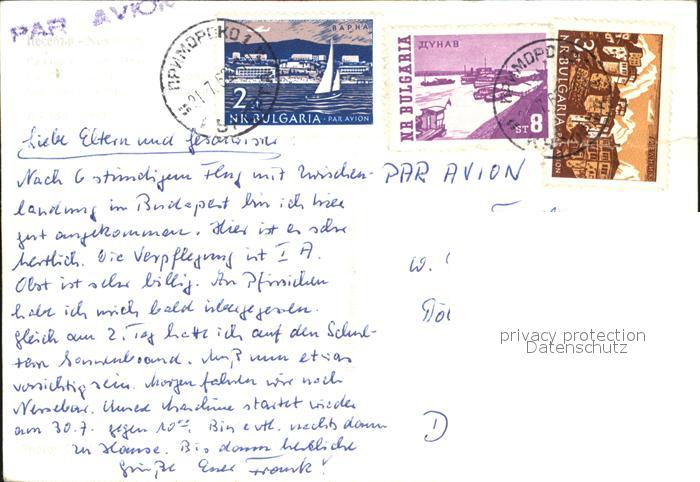 PAR AVION
ПРИМОРСКО 1
21.7.6
ВАРНА
2
NR. BULGARIA - PAR AVION
NR BULGARIA
ДУНАВ
ST 8
ПРИМОРСКО
3
NR BULGARIA
Liebe Eltern und Geschwister
Nach 6 stündigem Flug mit Zwischen-
landung in Budapest bin ich hier
gut angekommen. Hier ist es sehr
herrlich. Die Verpflegung ist I A.
Obst ist sehr billig. An Pfirsichen
habe ich mich bald übergegessen.
Gleich am 2. Tag hatte ich auf den Schul-
tern Sonnenbrand. Muß nun etwas
vorsichtig sein. Morgen fahren wir nach
Nessebar. Unsere Maschine startet wieder
am 30.7. gegen Bin evtl. nachts dann
zu Hause. Bis dann herzliche
Grüße Euer Frank!
PAR AVION
W.
D
privacy protection
Datenschutz